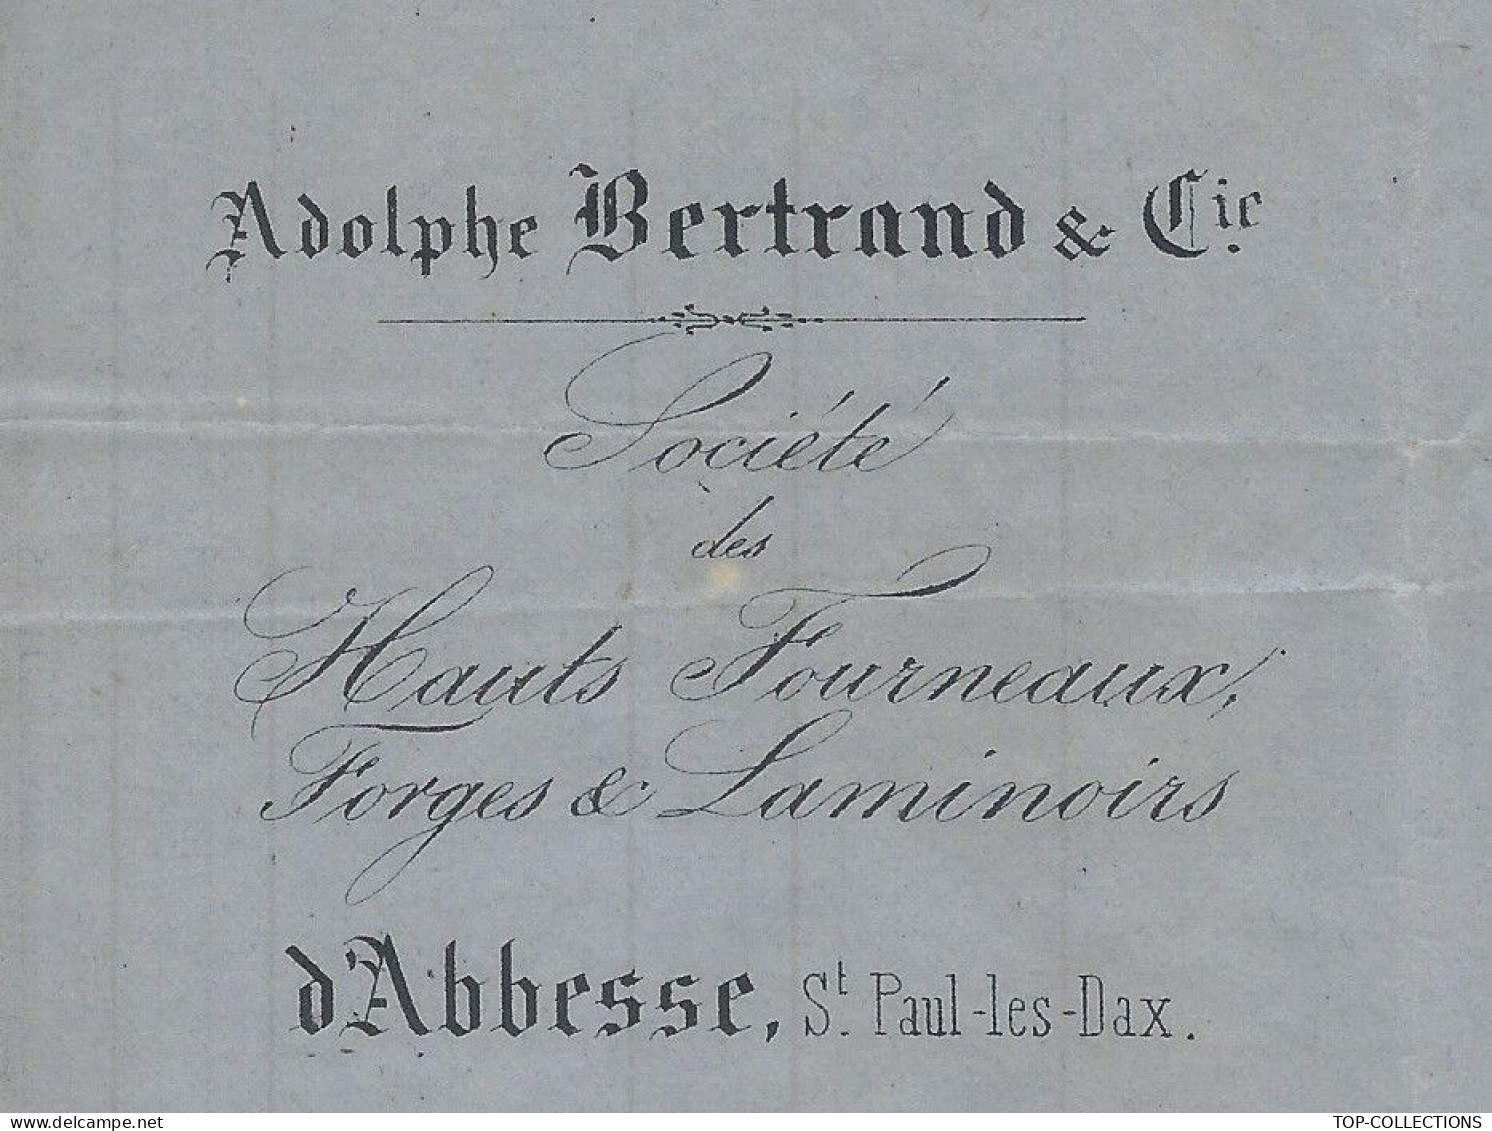 Adolphe Bertrand & Cie.
Société
des
Hauts Fourneaux,
Forges & Laminoirs
d'Abbesse, St. Paul-les-Dax.
delcampe.net
TOP-COLLECTIONS